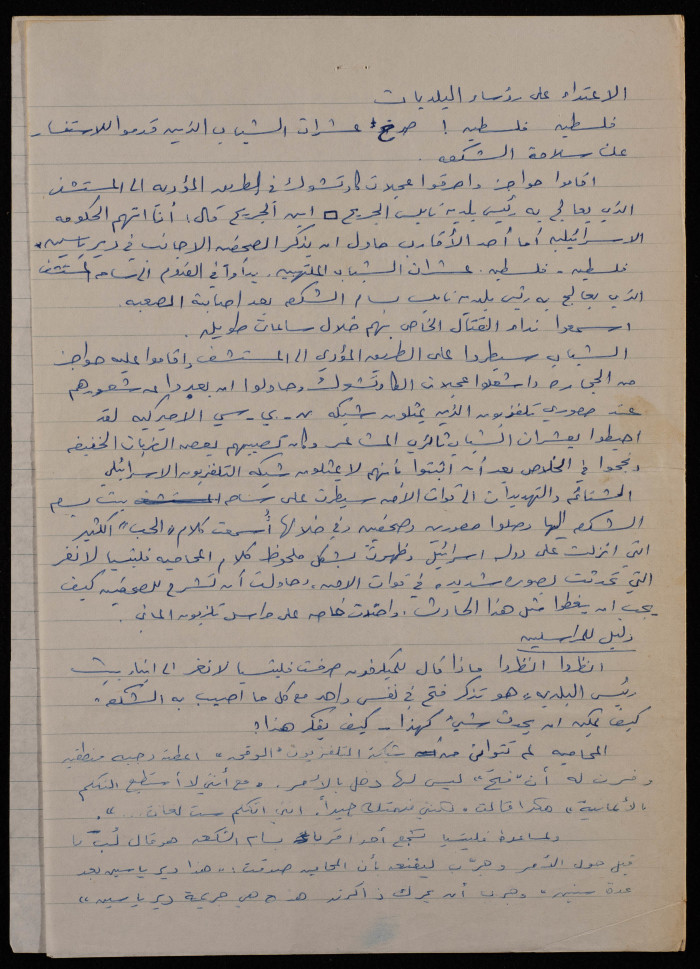 الاعتداء على رؤساء البلديات
فلسطين فلسطين! صرخ عشرات الشباب الذين قدموا للاستفسار
عن سلامة الشكعه.
اقاموا حواجز واحرقوا عجلات كاوتشوك في الطريق المؤديه الى المستشفى
الذي يعالج به رئيس بلدية نابلس الجريح ابن الجريح قال: أنا اتهم الحكومه
الاسرائيليه أما أحد الأقارب حاول ان يذكر الصحفين الاجانب في دير ياسين
فلسطين - فلسطين. عشرات الشباب الملتهبين. بدأوا في القدوم الى ساحه المستشفى
الذي يعالج به رئيس بلدية نابلس بسام الشكعه بعد اصابته الصعبه.
اسمعوا نداء القتال الخاص بهم خلال ساعات طويله.
الشباب سيطروا على الطريق المؤدي الى المستشفى واقاموا عليه حواجز
من الحجاره واشعلوا عجلات الكاوتشوك وحاولوا ان يعبروا عن شعورهم
عند مصوري تلفزيون الذين يمثلون شبكه ن. بي. سي الامريكيه لقد
احيطوا بعشرات الشباب ثائري المشاعر وكان نصيبهم بعض الضربات الخفيفه
ونجحوا في الخلاص بعد أن اثبتوا بأنهم لا يمثلون شبكه التلفزيون الاسرائيلي
الشتائم والتهديدات الى قوات الأمن سيطرت على ساحه بيت بسام
الشكعه اليها وصلوا مصورين وصحفيين وفي خلالها أُسمعت كلام "الحب" الكثير
التي انزلت على دولة اسرائيل وظهرت بشكل ملحوظ كلام المحاميه فليتسيا لانغر
التي تحدثت بصوره شديده في قوات الامن. وحاولت أن تشرح للصحفين كيف
يجب ان يغطوا مثل هذا الحادث. خاصه على مراسل تلفزيون الماني.
دليل للمراسلين
انظروا انظروا ماذا قال للميكرفون صرخت فليتسيا لانغر الى ابناء بيت
رئيس البلديه، هو تذكر فتح في نفس واحد مع كل ما أصيب به الشكعه"
كيف يمكن ان يحدث شيئ كهذا - كيف يفكر هذا!
المحاميه لم تتوانى شبكة التلفزيون "الوقحه" اعطته وجبه منطقيه
وفسرت له أن "فتح" ليس لها دخل بالامر. "مع أنني لا أستطيع التكلم
بالألمانية" هكذا قالت "لكنني افهمك جيداً. انني اتكلم ست لغات ...".
ولمساعدة فليتسيا تجمع أحد اقرباء بسام الشكعه هو قال
قيل حول الأمر وجرب ليقنعه بأن المحاميه صدقت: "هذا دير ياسين بعد
عدة سنين" وجرب أن يحرك ذاكرته هذه هي جريمة دير ياسين"